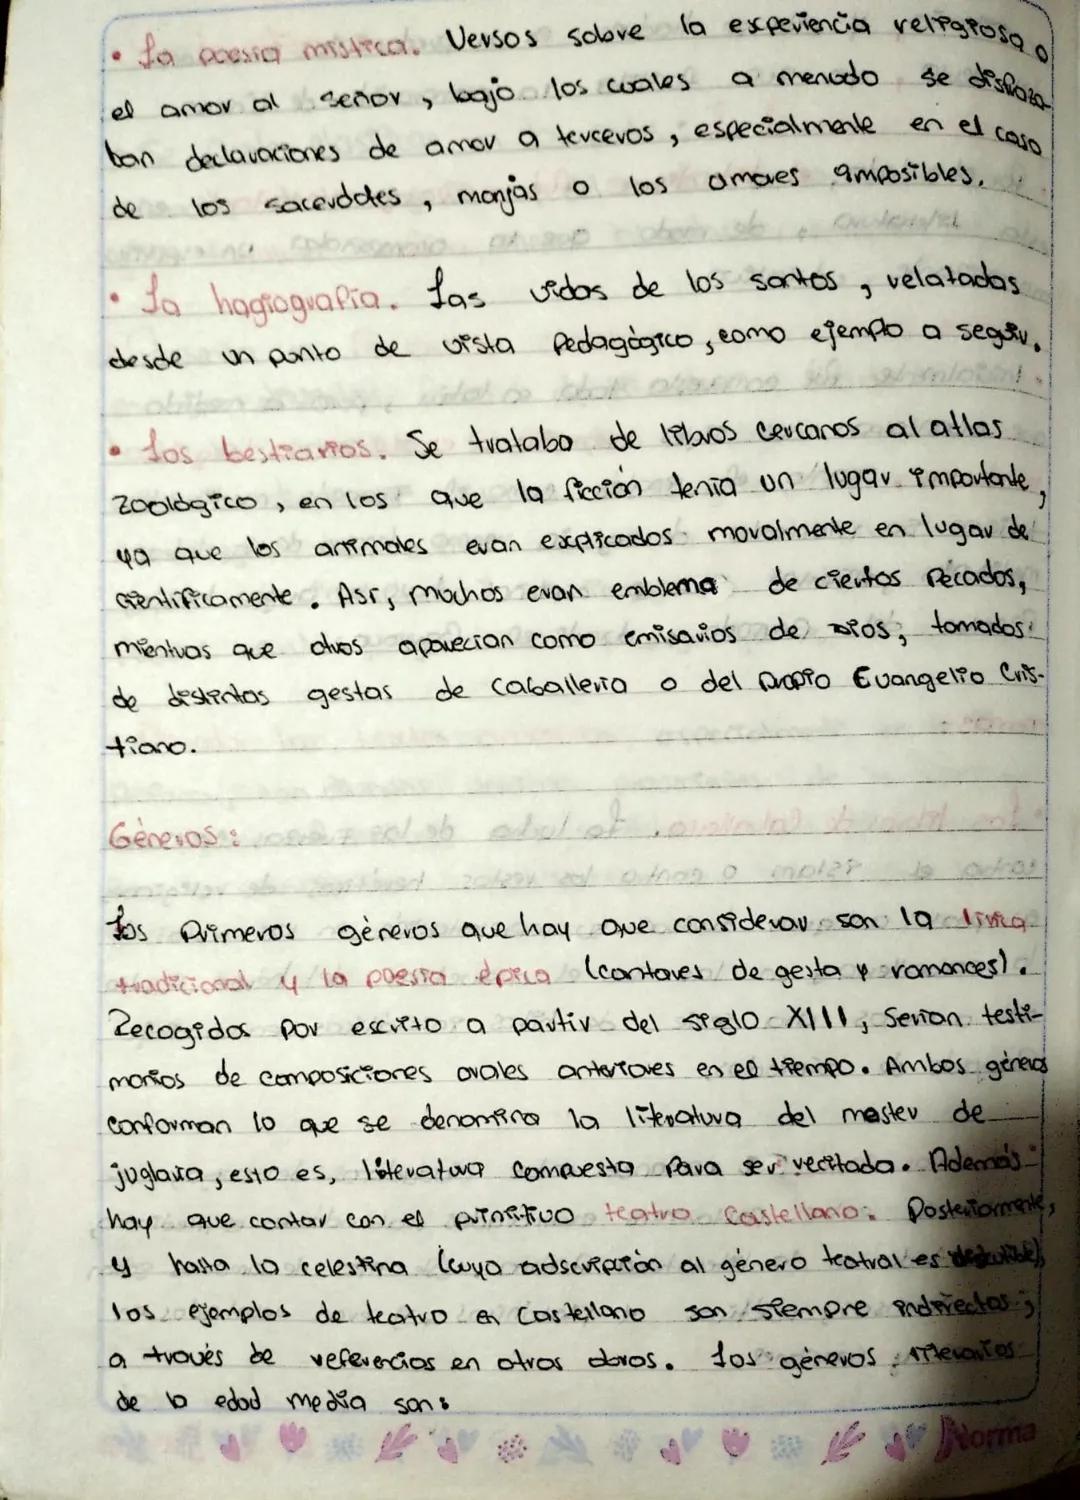 • La poesía mística. Versos sobre la experiencia religiosa o
el amor al señor, bajo los cuales a menudo se disfraza-
ban declaraciones de amor a terceros, especialmente en el caso
de los sacerdotes, monjas o los amores imposibles.
• La hagiografía. Las vidas de los santos, relatadas
desde un punto de vista pedagógico, como ejemplo a seguir.
• Los bestiarios. Se trataba de libros cercanos al atlas
zoológico, en los que la ficción tenía un lugar importante,
ya que los animales eran explicados moralmente en lugar de
científicamente. Así, muchos eran emblema de ciertos pecados,
mientras que otros aparecían como emisarios de Dios, tomados
de distintas gestas de caballería o del propio Evangelio Cris-
tiano.
Géneros:
Los primeros géneros que hay que considerar son la lírica
tradicional y la poesía épica (cantares de gesta y romances).
Recogidos por escrito a partir del siglo XIII, serían testi-
monios de composiciones orales anteriores en el tiempo. Ambos géneros
conforman lo que se denomina la literatura del mester de
juglaría, esto es, literatura compuesta para ser recitada. Además
hay que contar con el primitivo teatro Castellano. Posteriormente,
y hasta la celestina (cuya adscripción al género teatral es
los ejemplos de teatro en Castellano son siempre indirectos,
a través de referencias en otras obras. Los géneros literarios
de la edad media son:
Norma